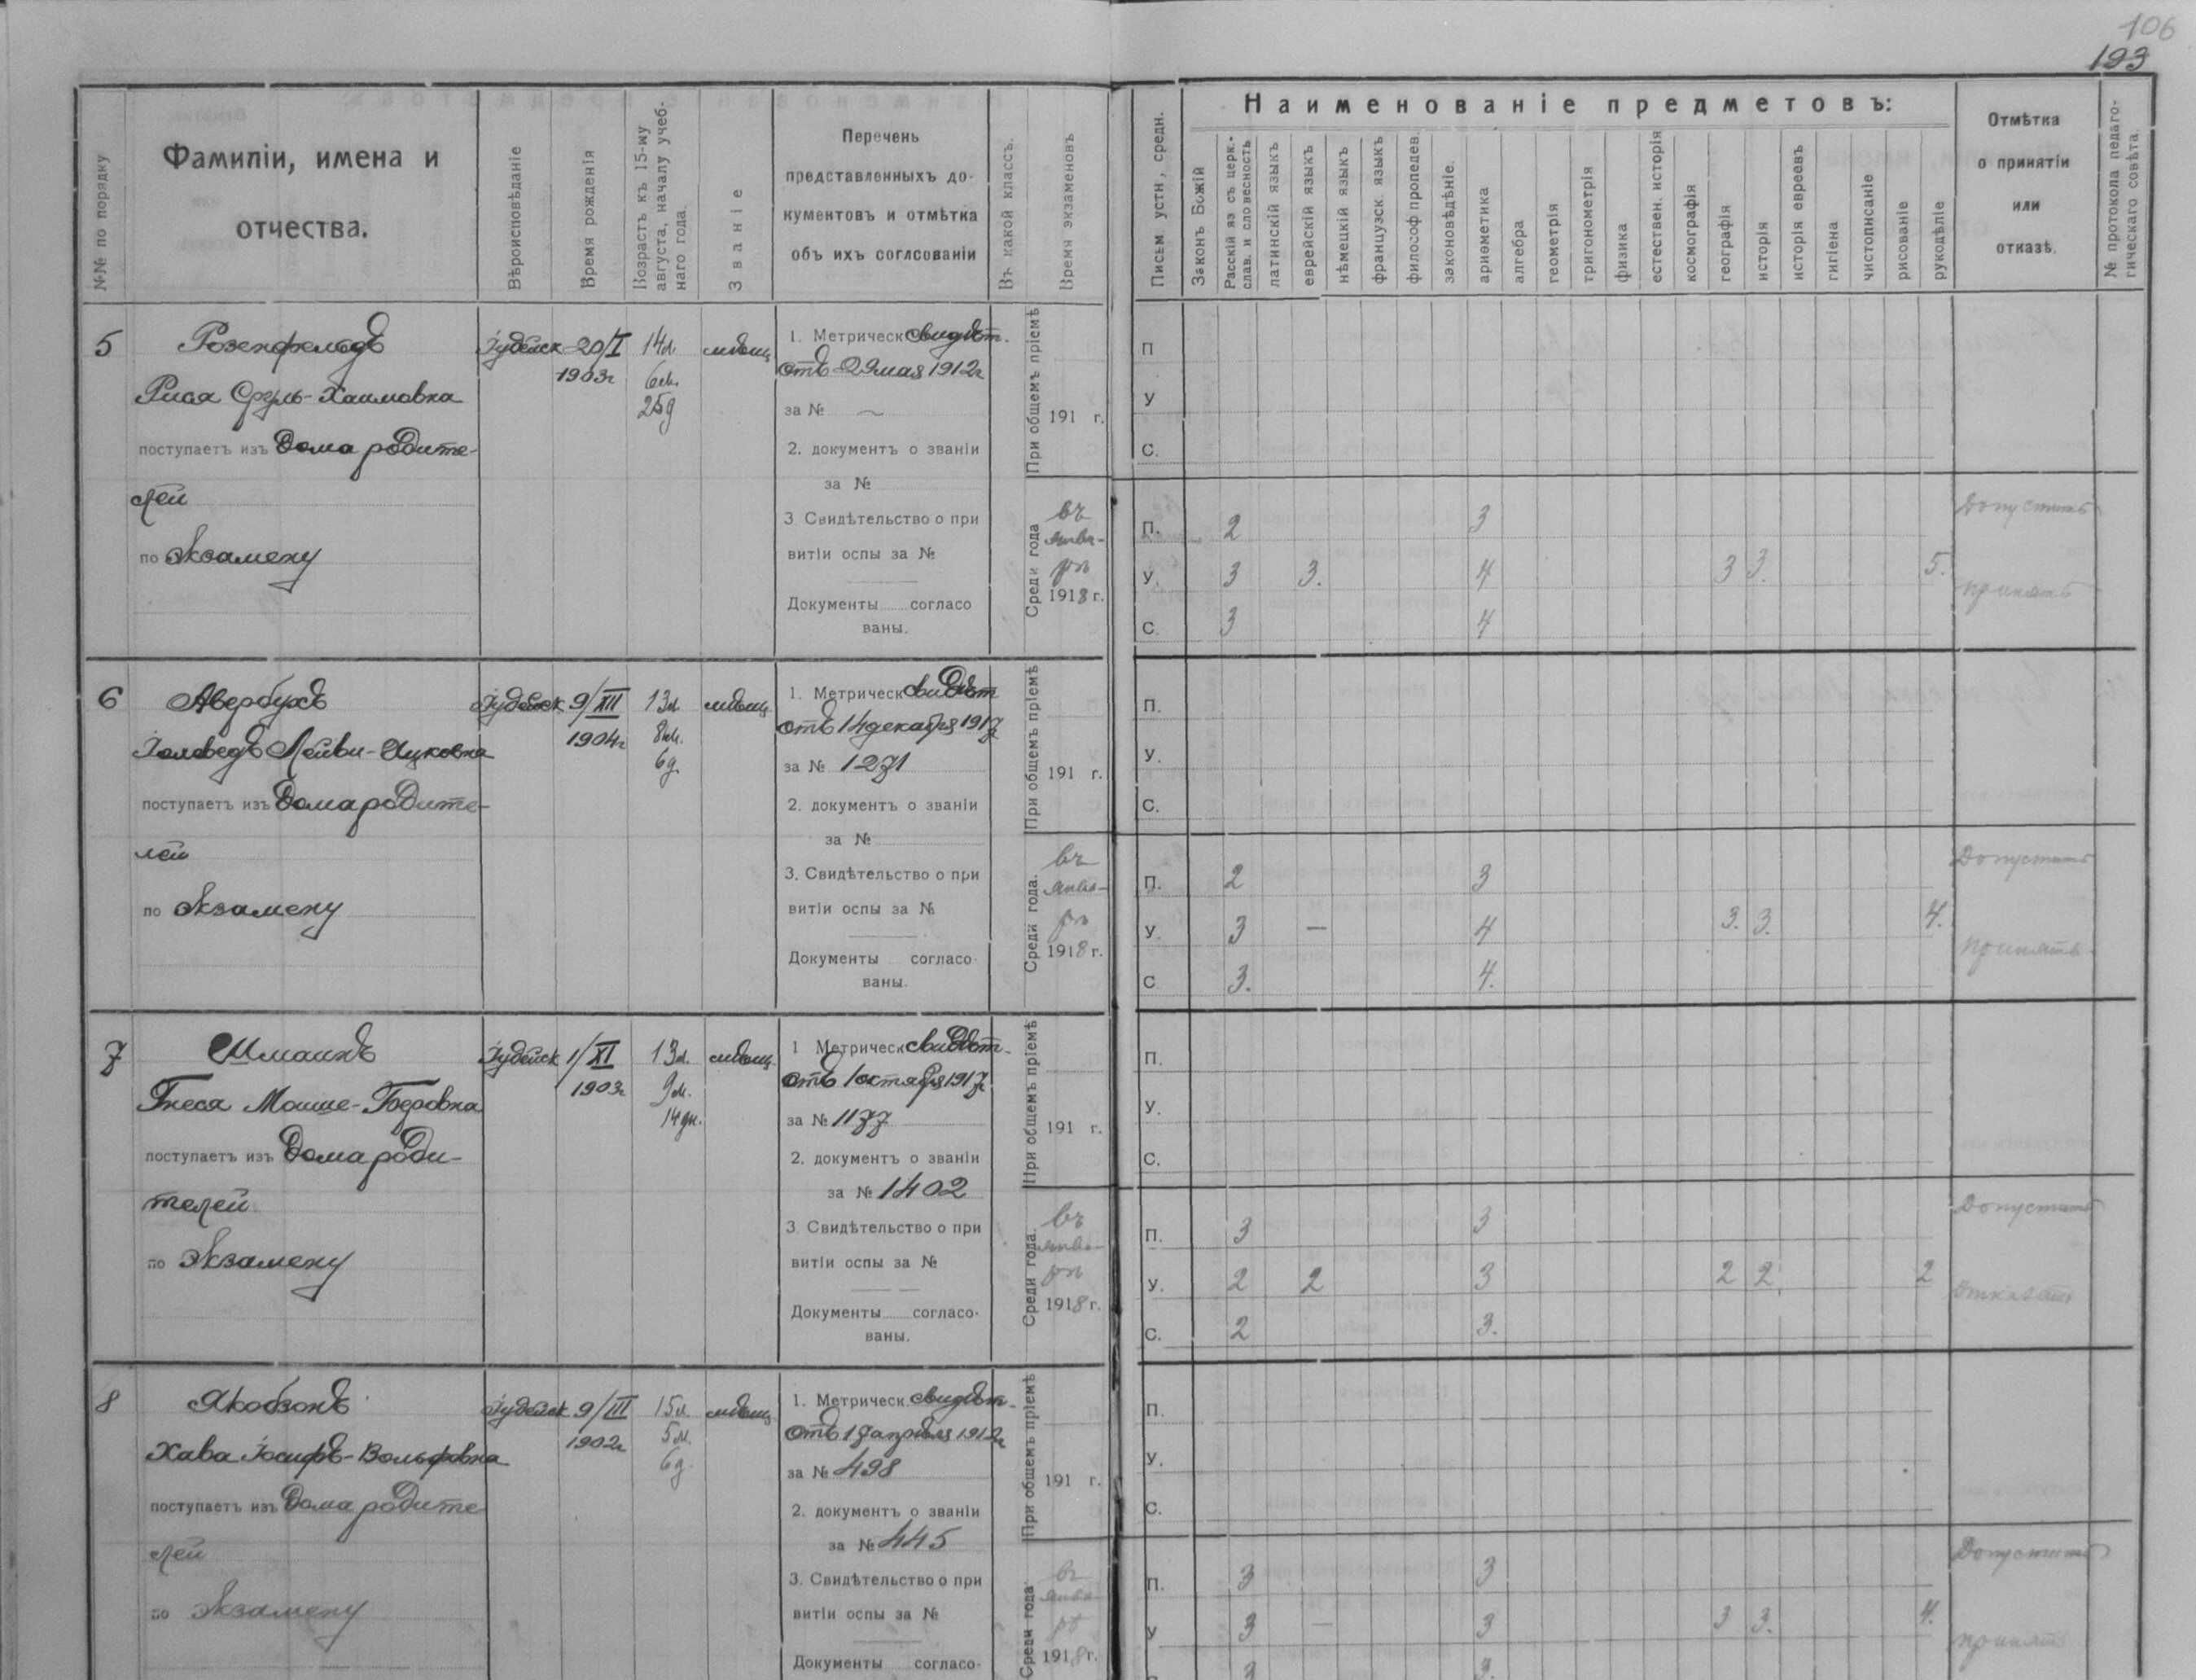 106
123
№№ по порядку
Фамиліи, имена и
отчества.
Вѣроисповѣданіе
Время рожденія
Возрастъ къ 15-му
августа, началу учеб-
наго года.
Званіе
Перечень
представленныхъ до-
кументовъ и отмѣтка
объ ихъ соглсованіи
Въ какой классъ.
Время экзаменовъ
Письм. устн., средн.
Наименованіе предметовъ:
Законъ Божій
Расскій яз. съ церк.-
слав. и словесность
латинскій языкъ
еврейскій языкъ
нѣмецкій языкъ
французск. языкъ
философ пропедев.
законовѣдѣніе.
ариѳметика
алгебра
геометрія
тригонометрія
физика
естествен. исторія
космографія
географія
исторія
исторія евреевъ
гигіена
чистописаніе
рисованіе
рукодѣліе
Отмѣтка
о принятіи
или
отказѣ.
№ протокола педаго-
гическаго совѣта.
5
Розенфельдъ
Рися Сруль-Хаимовна
поступаетъ изъ Дома родите-
лей
по Экзамену
Іудейск
20/I
1903г
14л.
6м.
25д
мѣщ
1. Метрическ свидѣт.
отъ 29 мая 1912г
за №
2. документъ о званіи
за №
3 Свидѣтельство о при
витіи оспы за №
Документы согласо
ваны.
При общемъ пріемѣ
191 г.
Среди года
въ
янва-
рѣ
1918 г.
П
У
С.
П. 2 3
У. 3 3. 4 3 3. 5.
С. 3 4
Допустить
принять
6
Авербухъ
Іохеведъ Лейви-Ицковна
поступаетъ изъ Дома родите-
лей
по Экзамену
Іудейск
9/XII
1904г
13л.
8м.
6д.
мѣщ
1. Метрическ свидѣт
отъ 14 декабря 1917г
за № 1271
2. документъ о званіи
за №
3. Свидѣтельство о при
витіи оспы за №
Документы согласо-
ваны.
При общемъ пріемѣ
191 г.
Среди года.
въ
янва-
рѣ
1918 г.
П.
У.
С.
П. 2 3
У. 3 — 4 3. 3. 4.
С 3. 4.
Допустить
принять
7
Шмаинъ
Гнеся Мошше-Беровна
поступаетъ изъ Дома роди-
телей
по Экзамену
Іудейск
1/XI
1903г
13л.
9м.
14дн.
мѣщ
1 Метрическ свидѣт.
отъ 1 октября 1917г
за № 1177
2. документъ о званіи
за № 1402
3. Свидѣтельство о при
витіи оспы за №
Документы согласо-
ваны.
При общемъ пріемѣ
191 г.
Среди года.
въ
янва-
рѣ
1918 г.
П.
У.
С.
П. 3 3
У. 2 2 3 2 2. 2
С. 2 3.
Допустить
отказать
8
Якобзонъ
Хава Іосифъ-Вольфовна
поступаетъ изъ Дома родите
лей
по Экзамену
Іудейск
9/III
1902г
15л.
5м.
6д.
мѣщ
1. Метрическ. свидѣт.
отъ 17 апрѣля 1912г
за № 498
2. документъ о званіи
за № 445
3. Свидѣтельство о при
витіи оспы за №
Документы согласо-
При общемъ пріемѣ
191 г.
Среди года.
въ
янва-
рѣ
1918 г.
П.
У.
С.
П. 3 3
У 3 — 3 3 3. 4.
С. 3 3.
Допустить
принять